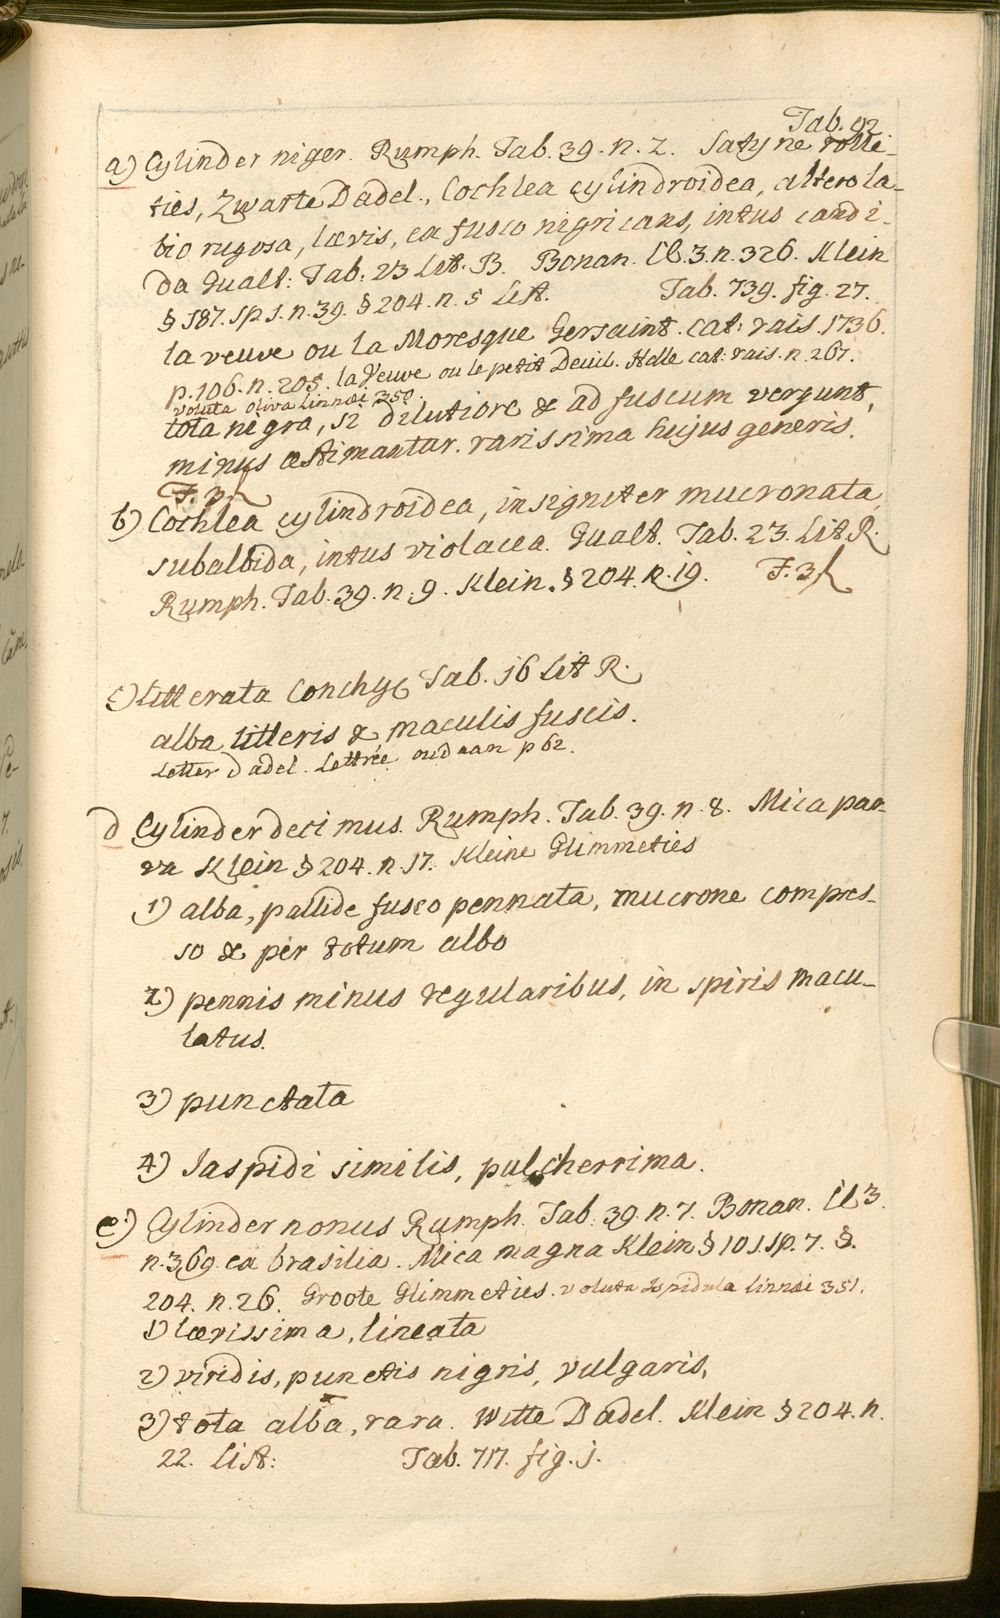 Tab. 92
a) Cylinder niger. Rumph. Tab. 39. n. 2. Satyne rolle-
ties, Zwarte Dadel., Cochlea cylindroidea, altero la-
bio rugosa, lævis, ex fusco nigricans, intus candi-
da Gualt: Tab. 23 Lit. B. Bonan. Cl. 3. n. 326. Klein
§ 187. sp 1. n. 39. § 204. n. 5 List. Tab. 739. fig. 27.
la veuve ou la Moresque Gersaint. cat: rais. 1736.
p. 106. n. 205. la Veuve ou le petit Deuil. Helle cat: rais. n. 267.
voluta oliva linnæi 350.
tota nigra, si dilutiore & ad fuscum vergunt,
minus æstimantur. rarissima hujus generis.
F. 3
b) Cochlea cylindroidea, insigniter mucronata
subalbida, intus violacea. Gualt. Tab. 23. Lit R.
Rumph. Tab. 39. n. 9. Klein. § 204. n. 19. F. 3
c) Litterata Conchyl Tab. 16 Lit R.
alba litteris & maculis fuscis.
Letter Dadel. Lettrée oudaan p 62.
d Cylinder decimus. Rumph. Tab. 39. n. 8. Mica par-
va Klein § 204. n. 17. Kleine Glimmeties
1) alba, pallide fusco pennata, mucrone compres-
so & per totum albo
2) pennis minus regularibus, in spiris macu-
latus.
3) punctata
4) Jaspidi similis, pulcherrima.
e) Cylinder nonus Rumph. Tab. 39. n. 7. Bonan. Cl 3.
n. 369. ex brasilia. Mica magna Klein § 101. sp. 7. §.
204. n. 26. Groote Glimmeties. voluta Ispidula linnæi 351.
1) lævissima, lineata
2) viridis, punctis nigris, vulgaris,
3) tota alba, rara. Witte Dadel. Klein § 204. n.
22. List: Tab. 717. fig. 1.